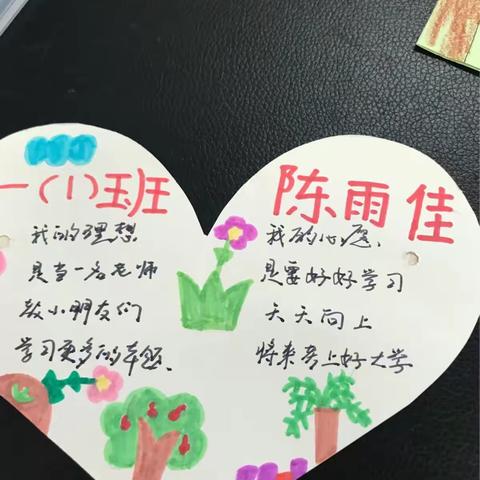 一(1)班
我的理想
是当一名老师
教小朋友们
学习更多的本领、
陈雨佳
我的心愿、
是要好好学习
天天向上
将来考上好大学